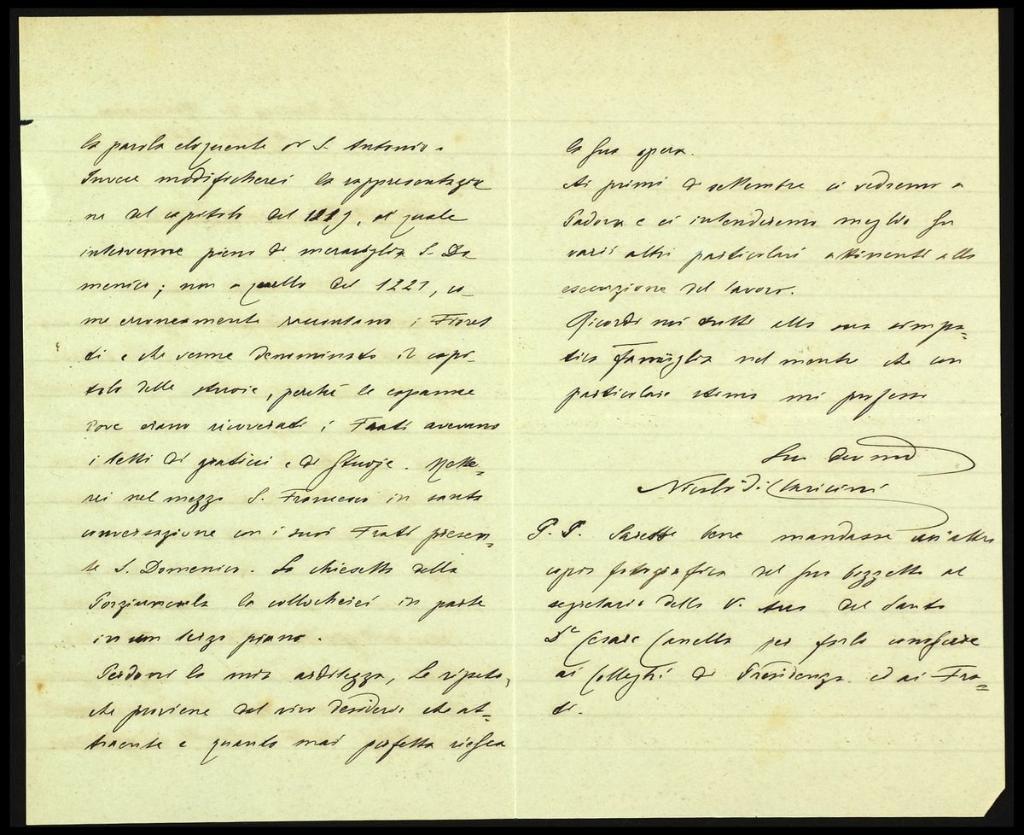 la parola eloquente di S. Antonio.
Invece modificherei la rappresentazio
ne del capitolo del 1219, al quale
intervenne pieno di meraviglia S. Do
menico; non a quello del 1221, co-
me erroneamente raccontano i Fioret
ti e che venne denominato il capi-
tolo delle stuoie, perchè le capanne
dove erano ricoverati i Frati avevano
i tetti di graticci e di stuoje. Mette-
rei nel mezzo S. Francesco in santa
conversazione con i suoi Frati presen-
te S. Domenico. La chiesetta della
Porziuncola la collocherei in parte
in un terzo piano.
Perdoni la mia arditezza, Le ripeto,
che proviene dal vivo desiderio che at-
traente e quanto mai perfetta riesca
la sua opera.
Ai primi di settembre ci vedremo a
Padova e ci intenderemo meglio su
varii altri particolari attinenti alla
esecuzione del lavoro.
Ricordi mi tutti alla sua simpa=
tica famiglia nel mentre che con
particolare stima mi professo
Suo devmo
Nicolò di Claricini
P. P. Sarebbe bene mandasse un'altra
copia fotografica del suo bozzetto al
segretario della V. Arca del Santo
Dr Cesare Canella per farla conoscere
ai Colleghi di Presidenza ed ai Fra=
ti.